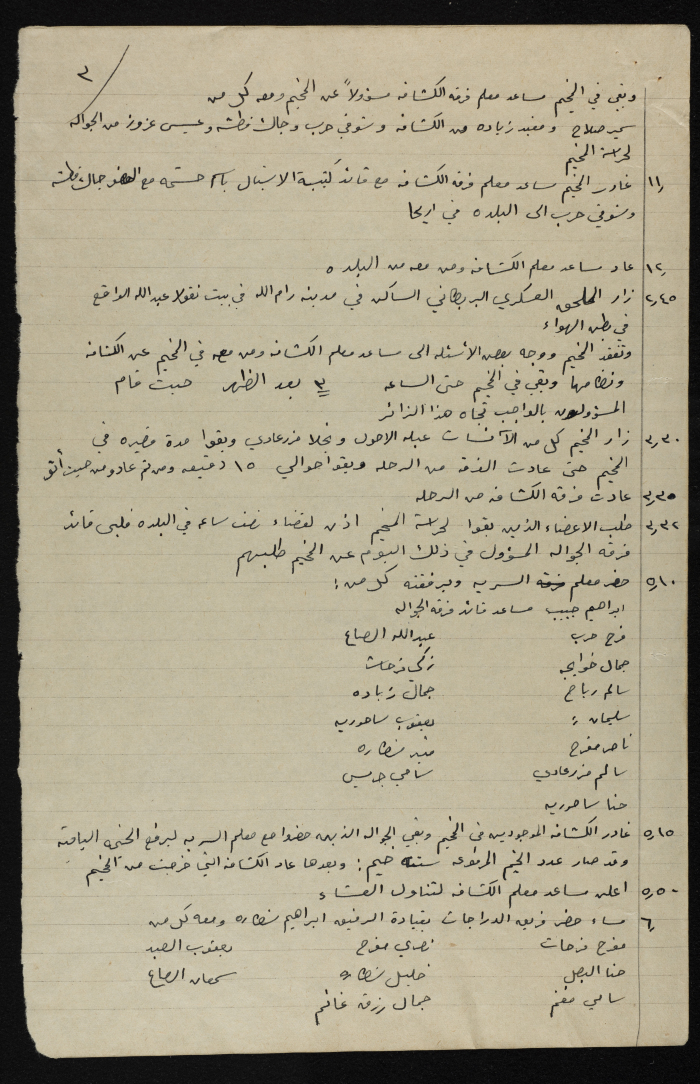 ٣
وبقي في المخيم مساعد معلم فرقة الكشافه مسؤولاً عن المخيم ومعه كل من
سمير صلاح ومفيد زياده من الكشافه وشوقي حرب وجاك قطشه وعيسى عزوز من الجواله
لحراسة المخيم
١١ر غادر المخيم مساعد معلم فرقة الكشافه مع قائد كتيبة الاستقبال باسم حشمه مع جمال قطشه
وشوقي حرب الى البلده في اريحا
١٢ر عاد مساعد معلم الكشافه ومن معه من البلده
٢ر٤٥ زار الملحق العسكري البريطاني الساكن في مدينة رام الله في بيت نقولا عبدالله الواقع
في بطن الهواء
وتفقد المخيم ووجه بعض الأسئله الى مساعد معلم الكشافه ومن معه في المخيم عن الكشافه
ونظامها وبقي في المخيم حتى الساعه ٣ بعد الظهر حيث قام
المسؤولون بالواجب تجاه هذا الزائر
٣ر٣٠ زار المخيم كل من الآنسات عبله الاحول ونجلا مزرعاوي وبقوا مدة قصيره في
المخيم حتى عادت الفرقة من الرحله وبقوا حوالي ١٥ دقيقه ومن ثم عادو من حيث أتو
٣ر٣٥ عادت فرقة الكشافه من الرحله
٣ر٣٢ طلب الاعضاء الذين بقوا لحراسة المخيم اذن لقضاء نصف ساعه في البلده فلبى قائد
فرقة الجواله المسؤول في ذلك اليوم عن المخيم طلبهم
٥ر١٠ حضر معلم السريه وبرفقته كل من :
ابراهيم حبيب مساعد قائد فرقة الجواله
فرح حرب عبدالله الصاع
جمال خوري زكي فرحات
سالم رباح جمال زياده
سليمان = يعقوب ساحوريه
ناصر مفرح منير شطاره
سالم مزرعاوي سامي جريس
حنا ساحوريه
٥ر١٥ غادر الكشافه الموجودين في المخيم وبقي الجواله الذين حضروا مع معلم السريه لرفع الخيمه الباقيه
وقد صار عدد الخيم المرفوعه ستة خيم : وبعدها عاد الكشافه التي خرجت من المخيم
٥ر٥٠ اعلن مساعد معلم الكشافه لتناول العشاء
٦ر مساء حضر فريق الدراجات بقيادة الرفيق ابراهيم شطاره ومعه كل من
مفرح فرحات نصري مفرح يعقوب العبد
حنا البصل خليل شطاره سمعان الصاع
سامي مغنم جمال رزق غانم